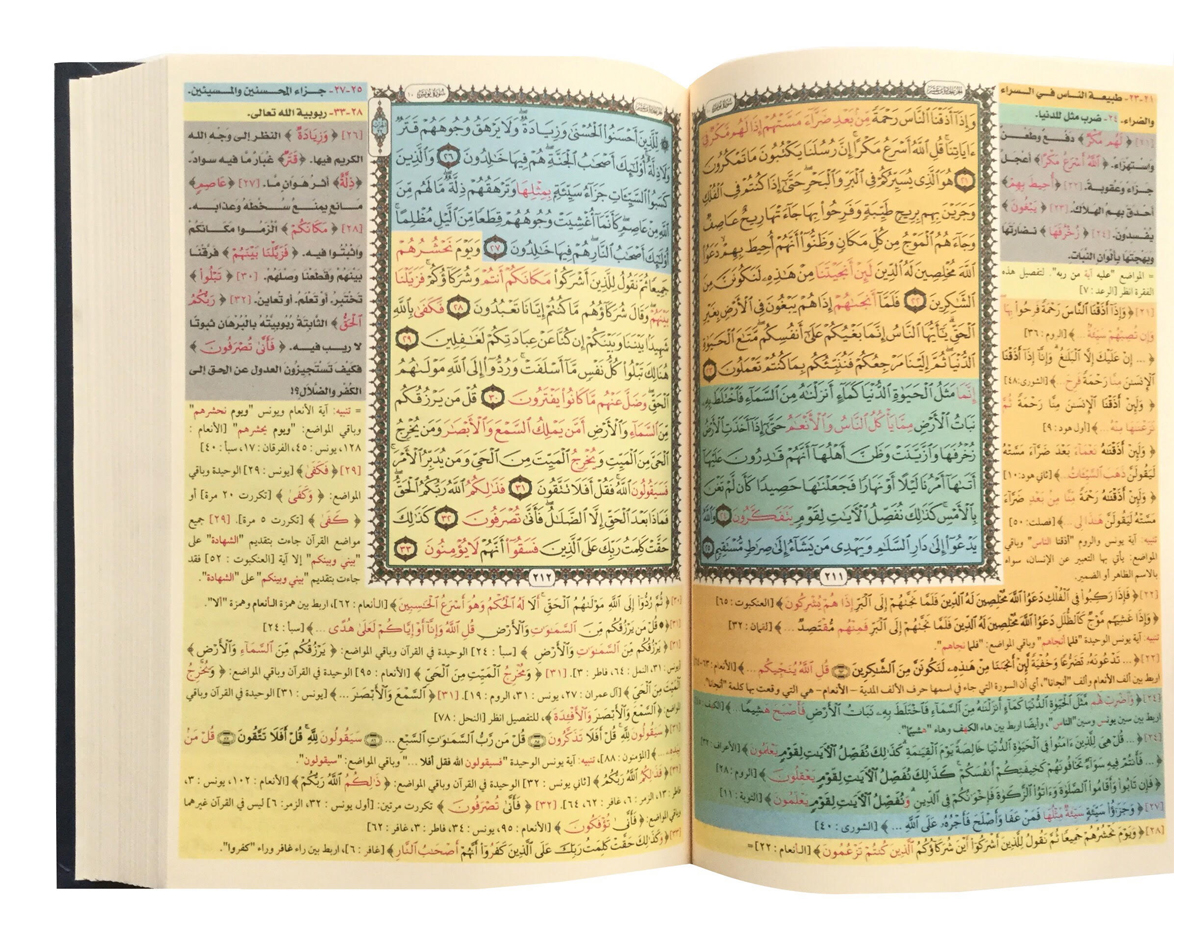 ٢١-٢٣- طبيعة الناس في السراء
والضراء، ٢٤- ضرب مثل للدنيا.
[٢١] ﴿لَهُم مَّكْرٌ﴾ دفع وطعن
واستهزاء. ﴿اللَّهُ أَسْرَعُ مَكْرًا﴾ أعجل
جزاء وعقوبة. [٢٢] ﴿أُحِيطَ بِهِمْ﴾
أحدق بهم الهلاك. [٢٣] ﴿يَبْغُونَ﴾
يفسدون. [٢٤] ﴿زُخْرُفَهَا﴾ نضارتها
وبهجتها بألوان النبات.
= المواضع "عليه آية من ربه". لتفصيل هذه
الفقرة انظر [الرعد: ٧]
[٢١] ﴿وَإِذَا أَذَقْنَا النَّاسَ رَحْمَةً فَرِحُوا بِهَا
وَإِن تُصِبْهُمْ سَيِّئَةٌ﴾ [الروم: ٣٦]
﴿... إِنْ عَلَيْكَ إِلَّا الْبَلَاغُ وَإِنَّا إِذَا أَذَقْنَا
الْإِنسَانَ مِنَّا رَحْمَةً فَرِحَ﴾ [الشورى: ٤٨]
﴿وَلَئِنْ أَذَقْنَا الْإِنسَانَ مِنَّا رَحْمَةً ثُمَّ
نَزَعْنَاهَا مِنْهُ﴾ [أول هود: ٩]
﴿وَلَئِنْ أَذَقْنَاهُ نَعْمَاءَ بَعْدَ ضَرَّاءَ مَسَّتْهُ
لَيَقُولَنَّ ذَهَبَ السَّيِّئَاتُ﴾ [ثاني هود: ١٠]
﴿وَلَئِنْ أَذَقْنَاهُ رَحْمَةً مِّنَّا مِن بَعْدِ ضَرَّاءَ
مَسَّتْهُ لَيَقُولَنَّ هَٰذَا لِي...﴾ [فصلت: ٥٠]
تنبيه: آية يونس والروم "أذقنا الناس" وباقي
المواضع: يأتي بها التعبير عن الإنسان، سواء
بالاسم الظاهر أو الضمير.
وَإِذَا أَذَقْنَا النَّاسَ رَحْمَةً مِّن بَعْدِ ضَرَّاءَ مَسَّتْهُمْ إِذَا لَهُم مَّكْرٌ فِي
ءَايَاتِنَا قُلِ اللَّهُ أَسْرَعُ مَكْرًا إِنَّ رُسُلَنَا يَكْتُبُونَ مَا تَمْكُرُونَ
٢١ هُوَ الَّذِي يُسَيِّرُكُمْ فِي الْبَرِّ وَالْبَحْرِ حَتَّىٰ إِذَا كُنتُمْ فِي الْفُلْكِ
وَجَرَيْنَ بِهِم بِرِيحٍ طَيِّبَةٍ وَفَرِحُوا بِهَا جَاءَتْهَا رِيحٌ عَاصِفٌ
وَجَاءَهُمُ الْمَوْجُ مِن كُلِّ مَكَانٍ وَظَنُّوا أَنَّهُمْ أُحِيطَ بِهِمْ دَعَوُا
اللَّهَ مُخْلِصِينَ لَهُ الدِّينَ لَئِنْ أَنجَيْتَنَا مِنْ هَٰذِهِ لَنَكُونَنَّ مِنَ
الشَّاكِرِينَ ٢٢ فَلَمَّا أَنجَاهُمْ إِذَا هُمْ يَبْغُونَ فِي الْأَرْضِ بِغَيْرِ
الْحَقِّ يَا أَيُّهَا النَّاسُ إِنَّمَا بَغْيُكُمْ عَلَىٰ أَنفُسِكُم مَّتَاعَ الْحَيَاةِ
الدُّنْيَا ثُمَّ إِلَيْنَا مَرْجِعُكُمْ فَنُنَبِّئُكُم بِمَا كُنتُمْ تَعْمَلُونَ ٢٣
إِنَّمَا مَثَلُ الْحَيَاةِ الدُّنْيَا كَمَاءٍ أَنزَلْنَاهُ مِنَ السَّمَاءِ فَاخْتَلَطَ بِهِ
نَبَاتُ الْأَرْضِ مِمَّا يَأْكُلُ النَّاسُ وَالْأَنْعَامُ حَتَّىٰ إِذَا أَخَذَتِ الْأَرْضُ
زُخْرُفَهَا وَازَّيَّنَتْ وَظَنَّ أَهْلُهَا أَنَّهُمْ قَادِرُونَ عَلَيْهَا
أَتَاهَا أَمْرُنَا لَيْلًا أَوْ نَهَارًا فَجَعَلْنَاهَا حَصِيدًا كَأَن لَّمْ تَغْنَ
بِالْأَمْسِ كَذَٰلِكَ نُفَصِّلُ الْآيَاتِ لِقَوْمٍ يَتَفَكَّرُونَ ٢٤ وَاللَّهُ
يَدْعُو إِلَىٰ دَارِ السَّلَامِ وَيَهْدِي مَن يَشَاءُ إِلَىٰ صِرَاطٍ مُّسْتَقِيمٍ ٢٥
٢١١
[٢٢] ﴿فَإِذَا رَكِبُوا فِي الْفُلْكِ دَعَوُا اللَّهَ مُخْلِصِينَ لَهُ الدِّينَ فَلَمَّا نَجَّاهُمْ إِلَى الْبَرِّ إِذَا هُمْ يُشْرِكُونَ﴾ [العنكبوت: ٦٥]
﴿وَإِذَا غَشِيَهُم مَّوْجٌ كَالظُّلَلِ دَعَوُا اللَّهَ مُخْلِصِينَ لَهُ الدِّينَ فَلَمَّا نَجَّاهُمْ إِلَى الْبَرِّ فَمِنْهُم مُّقْتَصِدٌ ...﴾ [لقمان: ٣٢]
تنبيه: آية يونس الوحيدة "فلما أنجاهم" وباقي المواضع: "فلما نجاهم".
[٢٢] ﴿... تَدْعُونَهُ تَضَرُّعًا وَخُفْيَةً لَّئِنْ أَنجَانَا مِنْ هَٰذِهِ لَنَكُونَنَّ مِنَ الشَّاكِرِينَ ٦٣ قُلِ اللَّهُ يُنَجِّيكُم ...﴾ [الأنعام:
اربط بين ألف الأنعام وألف "أنجانا"، أي أن السورة التي جاء في اسمها حرف الألف المدية - الأنعام - هي التي وقعت بها كلمة "أنجانا"
[٢٤] ﴿وَاضْرِبْ لَهُم مَّثَلَ الْحَيَاةِ الدُّنْيَا كَمَاءٍ أَنزَلْنَاهُ مِنَ السَّمَاءِ فَاخْتَلَطَ بِهِ نَبَاتُ الْأَرْضِ فَأَصْبَحَ هَشِيمًا...﴾ [الكهف:
اربط بين سين يونس وسين "الناس"، وأيضا اربط بين هاء الكهف وهاء "هشيمًا".
[٢٤] ﴿... قُلْ هِيَ لِلَّذِينَ ءَامَنُوا فِي الْحَيَاةِ الدُّنْيَا خَالِصَةً يَوْمَ الْقِيَامَةِ كَذَٰلِكَ نُفَصِّلُ الْآيَاتِ لِقَوْمٍ يَعْلَمُونَ﴾ [الأعراف: ٣٢]
﴿... فَأَنتُمْ فِيهِ سَوَاءٌ تَخَافُونَهُمْ كَخِيفَتِكُمْ أَنفُسَكُمْ كَذَٰلِكَ نُفَصِّلُ الْآيَاتِ لِقَوْمٍ يَعْقِلُونَ﴾ [الروم: ٢٨]
﴿فَإِن تَابُوا وَأَقَامُوا الصَّلَاةَ وَءَاتَوُا الزَّكَاةَ فَإِخْوَانُكُمْ فِي الدِّينِ وَنُفَصِّلُ الْآيَاتِ لِقَوْمٍ يَعْلَمُونَ﴾ [التوبة: ١١]
[٢٧] ﴿وَجَزَاءُ سَيِّئَةٍ سَيِّئَةٌ مِّثْلُهَا فَمَنْ عَفَا وَأَصْلَحَ فَأَجْرُهُ عَلَى اللَّهِ ...﴾ [الشورى: ٤٠]
[٢٨] ﴿وَيَوْمَ نَحْشُرُهُمْ جَمِيعًا ثُمَّ نَقُولُ لِلَّذِينَ أَشْرَكُوا أَيْنَ شُرَكَاؤُكُمُ الَّذِينَ كُنتُمْ تَزْعُمُونَ﴾ [الأنعام: ٢٢] =
لِّلَّذِينَ أَحْسَنُوا الْحُسْنَىٰ وَزِيَادَةٌ وَلَا يَرْهَقُ وُجُوهَهُمْ قَتَرٌ
وَلَا ذِلَّةٌ أُولَٰئِكَ أَصْحَابُ الْجَنَّةِ هُمْ فِيهَا خَالِدُونَ ٢٦ وَالَّذِينَ
كَسَبُوا السَّيِّئَاتِ جَزَاءُ سَيِّئَةٍ بِمِثْلِهَا وَتَرْهَقُهُمْ ذِلَّةٌ مَّا لَهُم مِّنَ
اللَّهِ مِنْ عَاصِمٍ كَأَنَّمَا أُغْشِيَتْ وُجُوهُهُمْ قِطَعًا مِّنَ اللَّيْلِ مُظْلِمًا
أُولَٰئِكَ أَصْحَابُ النَّارِ هُمْ فِيهَا خَالِدُونَ ٢٧ وَيَوْمَ نَحْشُرُهُمْ
جَمِيعًا ثُمَّ نَقُولُ لِلَّذِينَ أَشْرَكُوا مَكَانَكُمْ أَنتُمْ وَشُرَكَاؤُكُمْ فَزَيَّلْنَا
بَيْنَهُمْ وَقَالَ شُرَكَاؤُهُم مَّا كُنتُمْ إِيَّانَا تَعْبُدُونَ ٢٨ فَكَفَىٰ بِاللَّهِ
شَهِيدًا بَيْنَنَا وَبَيْنَكُمْ إِن كُنَّا عَنْ عِبَادَتِكُمْ لَغَافِلِينَ ٢٩
هُنَالِكَ تَبْلُو كُلُّ نَفْسٍ مَّا أَسْلَفَتْ وَرُدُّوا إِلَى اللَّهِ مَوْلَاهُمُ
الْحَقِّ وَضَلَّ عَنْهُم مَّا كَانُوا يَفْتَرُونَ ٣٠ قُلْ مَن يَرْزُقُكُم
مِّنَ السَّمَاءِ وَالْأَرْضِ أَمَّن يَمْلِكُ السَّمْعَ وَالْأَبْصَارَ وَمَن يُخْرِجُ
الْحَيَّ مِنَ الْمَيِّتِ وَيُخْرِجُ الْمَيِّتَ مِنَ الْحَيِّ وَمَن يُدَبِّرُ الْأَمْرَ
فَسَيَقُولُونَ اللَّهُ فَقُلْ أَفَلَا تَتَّقُونَ ٣١ فَذَٰلِكُمُ اللَّهُ رَبُّكُمُ الْحَقُّ
فَمَاذَا بَعْدَ الْحَقِّ إِلَّا الضَّلَالُ فَأَنَّىٰ تُصْرَفُونَ ٣٢ كَذَٰلِكَ
حَقَّتْ كَلِمَتُ رَبِّكَ عَلَى الَّذِينَ فَسَقُوا أَنَّهُمْ لَا يُؤْمِنُونَ ٣٣
٢١٢
٢٥-٢٧- جزاء المحسنين والمسيئين.
٢٨-٣٣- ربوبية الله تعالى.
[٢٦] ﴿وَزِيَادَةٌ﴾ النظر إلى وجه الله
الكريم فيها. ﴿قَتَرٌ﴾ غبار ما فيه سواد.
﴿ذِلَّةٌ﴾ أثر هوان ما. [٢٧] ﴿عَاصِمٍ﴾
مانع يمنع سخطه وعذابه.
[٢٨] ﴿مَكَانَكُمْ﴾ الزموا مكانكم
واثبتوا فيه. ﴿فَزَيَّلْنَا بَيْنَهُمْ﴾ فرقنا
بينهم وقطعنا وصلهم. [٣٠] ﴿تَبْلُو﴾
تختبر، أو تعلم، أو تعاين. [٣٢] ﴿رَبُّكُمُ
الْحَقُّ﴾ الثابتة ربوبيته بالبرهان ثبوتا
لا ريب فيه. ﴿فَأَنَّىٰ تُصْرَفُونَ﴾
فكيف تستجيزون العدول عن الحق إلى
الكفر والضلال؟!
= تنبيه: آية الأنعام ويونس "ويوم نحشرهم"
وباقي المواضع: "ويوم يحشرهم" [الأنعام:
١٢٨، يونس: ٤٥، الفرقان: ١٧، سبأ: ٤٠]
[٢٩] ﴿فَكَفَىٰ﴾ [يونس: ٢٩] الوحيدة وباقي
المواضع: ﴿وَكَفَىٰ﴾ [تكررت ٢٠ مرة] أو
﴿كَفَىٰ﴾ [تكررت ٥ مرة]. [٢٩] جميع
مواضع القرآن جاءت بتقديم "الشهادة" على
"بيني وبينكم" إلا آية [العنكبوت: ٥٢] فقد
جاءت بتقديم "بيني وبينكم" على "الشهادة".
[٣٠] ﴿ثُمَّ رُدُّوا إِلَى اللَّهِ مَوْلَاهُمُ الْحَقِّ أَلَا لَهُ الْحُكْمُ وَهُوَ أَسْرَعُ الْحَاسِبِينَ﴾ [الأنعام: ٦٢]، اربط بين همزة الأنعام وهمزة "ألا".
[٣١] ﴿قُلْ مَن يَرْزُقُكُم مِّنَ السَّمَاوَاتِ وَالْأَرْضِ قُلِ اللَّهُ وَإِنَّا أَوْ إِيَّاكُمْ لَعَلَىٰ هُدًى ...﴾ [سبأ: ٢٤]
[٣١] ﴿يَرْزُقُكُم مِّنَ السَّمَاوَاتِ وَالْأَرْضِ﴾ [سبأ: ٢٤] الوحيدة في القرآن وباقي المواضع: ﴿يَرْزُقُكُم مِّنَ السَّمَاءِ وَالْأَرْضِ﴾
[يونس: ٣١، النمل: ٦٤، فاطر: ٣]. [٣١] ﴿وَمُخْرِجُ الْمَيِّتِ مِنَ الْحَيِّ﴾ [الأنعام: ٩٥] الوحيدة في القرآن وباقي المواضع: ﴿وَتُخْرِجُ
الْمَيِّتَ مِنَ الْحَيِّ﴾ [آل عمران: ٢٧، يونس: ٣١، الروم: ١٩]. [٣١] ﴿السَّمْعَ وَالْأَبْصَارَ...﴾ [يونس: ٣١] الوحيدة في القرآن وباقي
المواضع: ﴿السَّمْعَ وَالْأَبْصَارَ وَالْأَفْئِدَةَ﴾، للتفصيل انظر [النحل: ٧٨]
[٣١] ﴿سَيَقُولُونَ لِلَّهِ قُلْ أَفَلَا تَذَكَّرُونَ ٨٥ قُلْ مَن رَّبُّ السَّمَاوَاتِ السَّبْعِ ... ٨٦ سَيَقُولُونَ لِلَّهِ قُلْ أَفَلَا تَتَّقُونَ ٨٧ قُلْ مَنْ
بِيَدِهِ...﴾ [المؤمنون: ٨٨]، تنبيه: آية يونس الوحيدة "فسيقولون الله فقل أفلا ..." وباقي المواضع: "سيقولون".
[٣٢] ﴿فَذَٰلِكُمُ اللَّهُ رَبُّكُمُ﴾ [ثاني يونس: ٣٢] الوحيدة في القرآن وباقي المواضع: ﴿ذَٰلِكُمُ اللَّهُ رَبُّكُمْ﴾ [الأنعام: ١٠٢، يونس: ٣،
فاطر: ١٣، الزمر: ٦، غافر: ٦٢، ٦٤]. [٣٢] ﴿فَأَنَّىٰ تُصْرَفُونَ﴾ تكررت مرتين: [أول يونس: ٣٢، الزمر: ٦] ليس في القرآن غيرهما
وباقي المواضع: ﴿فَأَنَّىٰ تُؤْفَكُونَ﴾ [الأنعام: ٩٥، يونس: ٣٤، فاطر: ٣، غافر: ٦٢]
[٣٣] ﴿وَكَذَٰلِكَ حَقَّتْ كَلِمَتُ رَبِّكَ عَلَى الَّذِينَ كَفَرُوا أَنَّهُمْ أَصْحَابُ النَّارِ﴾ [غافر: ٦]، اربط بين راء غافر وراء "كفروا".